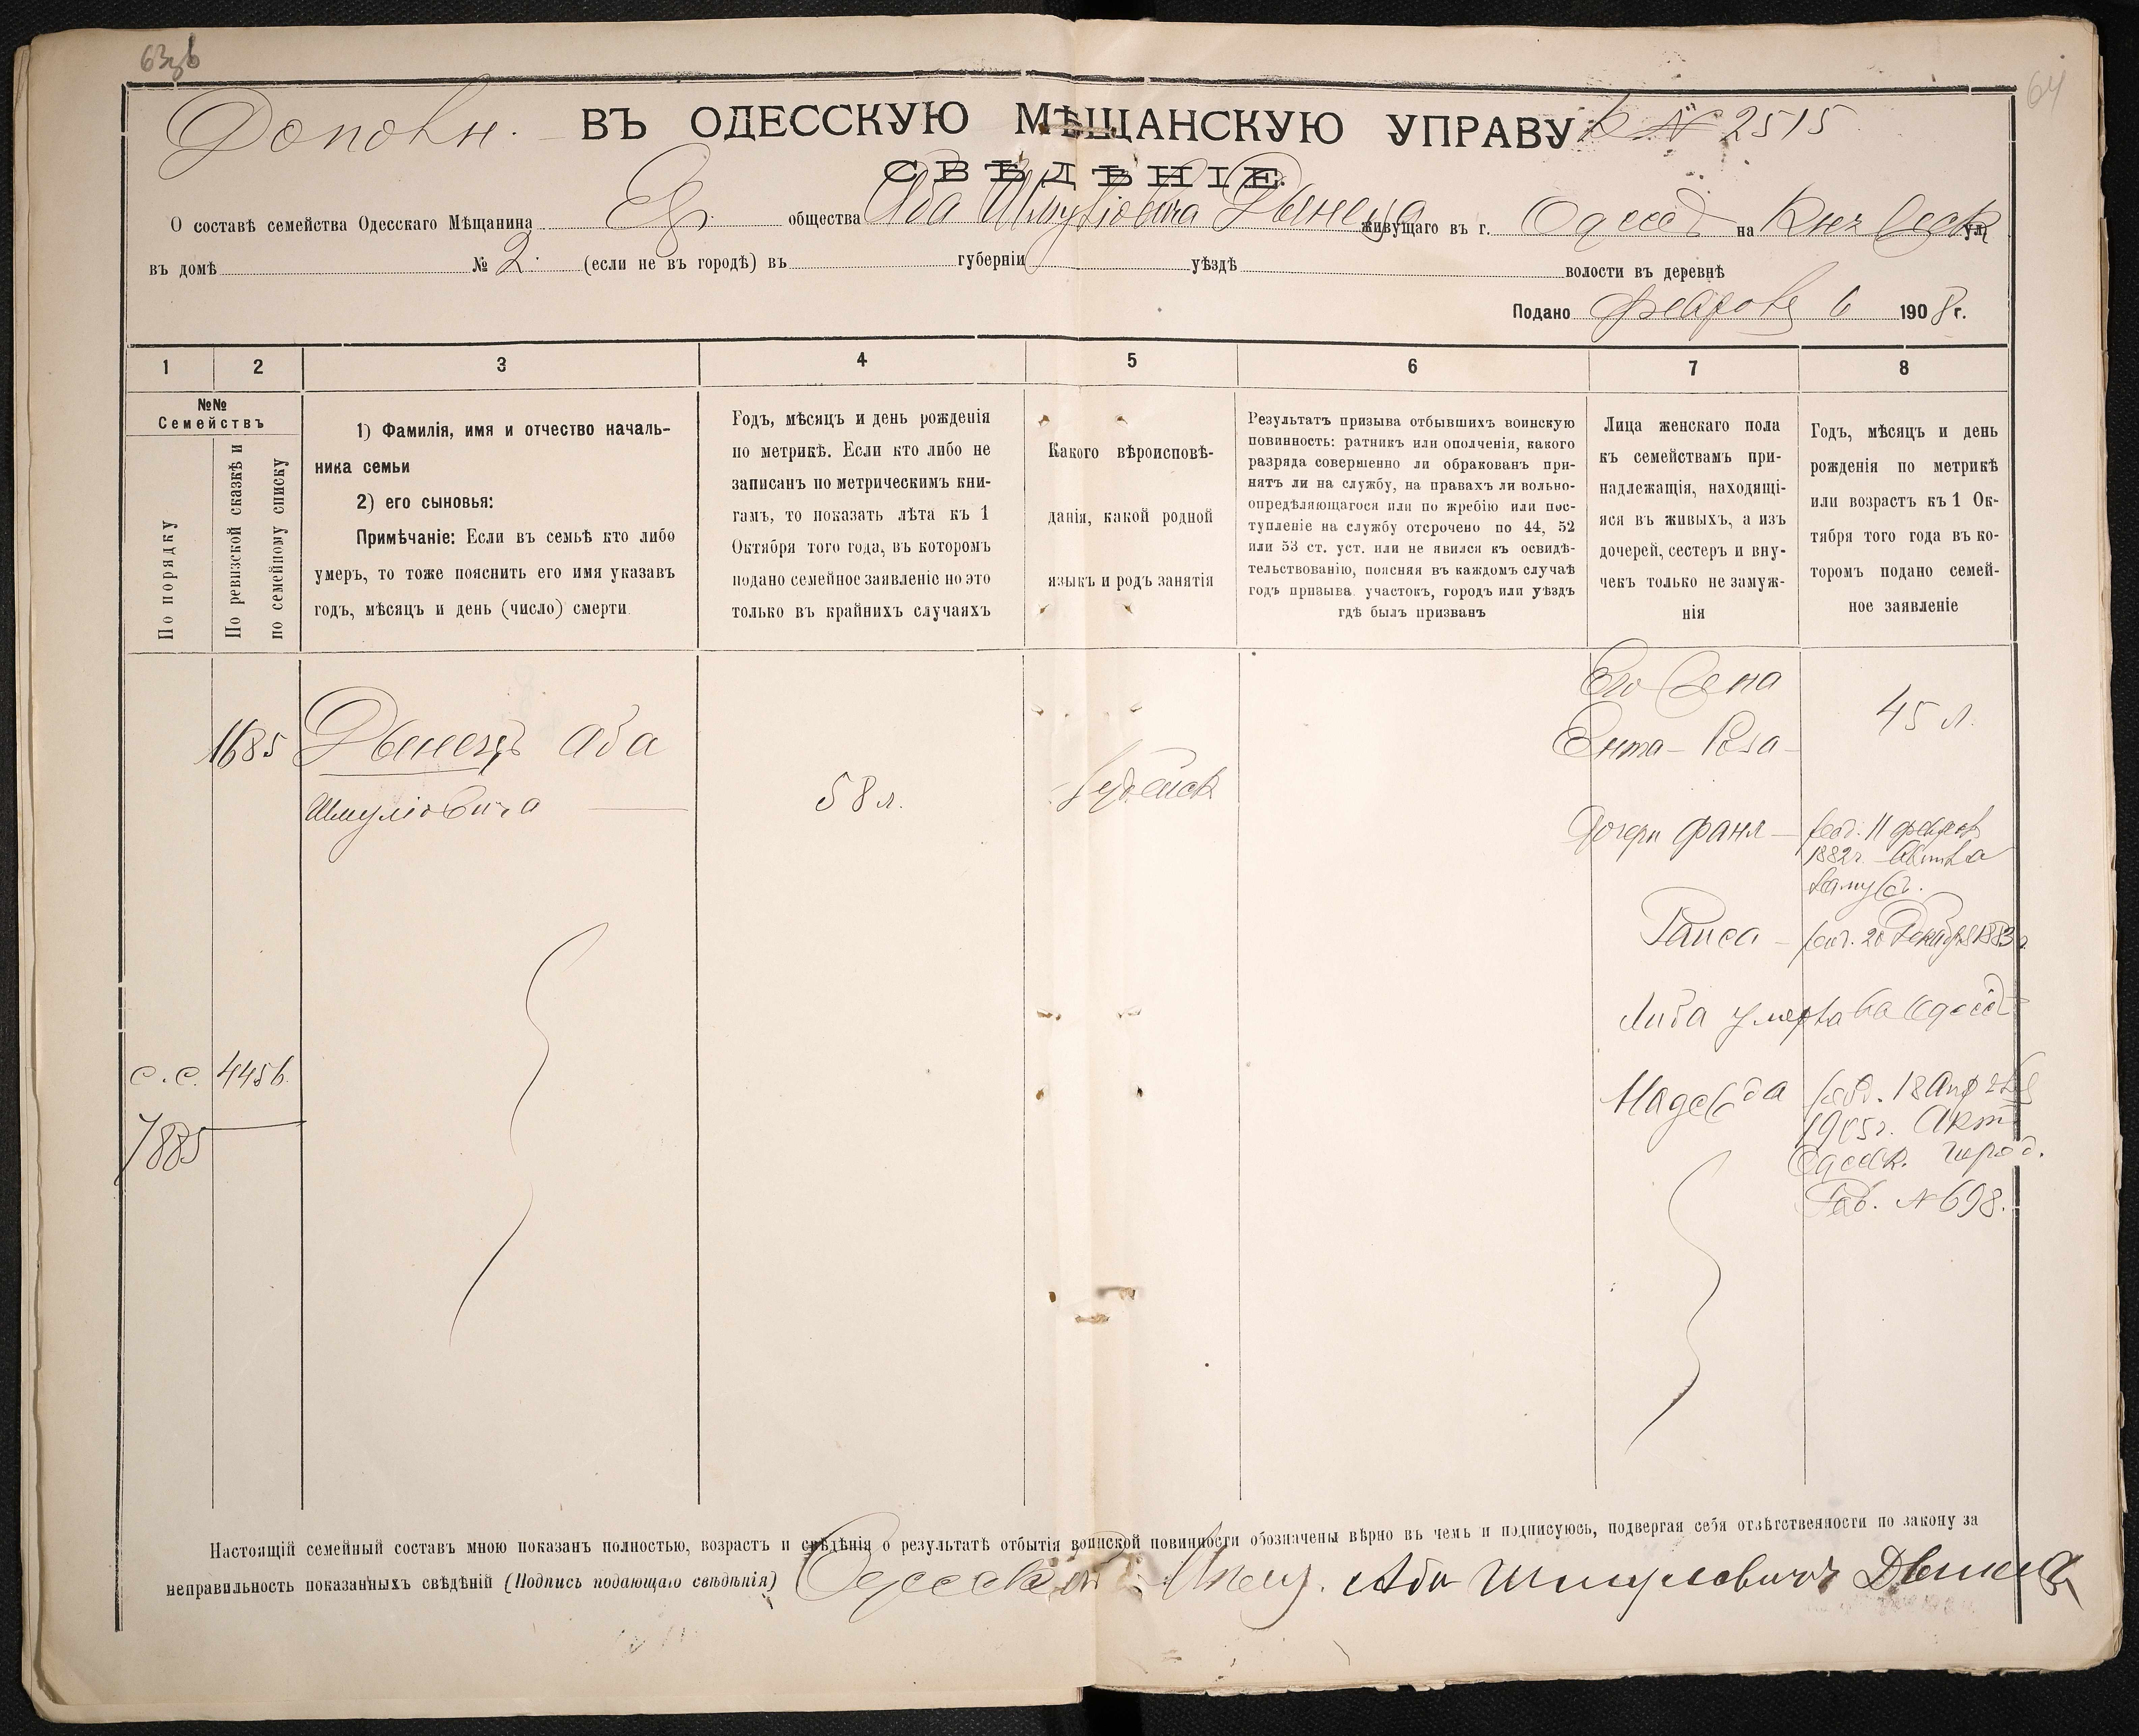 63об
64
Дополн. ВЪ ОДЕССКУЮ МѢЩАНСКУЮ УПРАВУ к № 2515
СВѢДѢНІЕ.
О составѣ семейства Одесскаго Мѣщанина Евр. общества Аба Шмулiовича Двенеца живущаго въ г. Одессѣ на ул.
въ домѣ № 2. (если не въ городѣ) въ губерніи уѣздѣ волости въ деревнѣ
Подано 6 1908 г.
1 2 3 4 5 6 7 8
№№
Семействъ
По порядку
По ревизской сказкѣ и
по семейному списку
1) Фамилія, имя и отчество началь-
ника семьи
2) его сыновья:
Примѣчаніе: Если въ семьѣ кто либо
умеръ, то тоже пояснить его имя указавъ
годъ, мѣсяцъ и день (число) смерти
Годъ, мѣсяцъ и день рожденія
по метрикѣ. Если кто либо не
записанъ по метрическимъ кни-
гамъ, то показать лѣта къ 1
Октября того года, въ которомъ
подано семейное заявленіе но это
только въ крайнихъ случаяхъ
Какого вѣроисповѣ-
данія, какой родной
языкъ и родъ занятія
Результатъ призыва отбывшихъ воинскую
повинность: ратникъ или ополченія, какого
разряда совершенно ли обракованъ при-
нятъ ли на службу, на правахъ ли вольно-
опредѣляющагося или по жребію или пос-
тупленіе на службу отсрочено по 44, 52
или 53 ст. уст. или не явился къ освидѣ-
тельствованію, поясняя въ каждомъ случаѣ
годъ призыва. участокъ, городъ или уѣздъ
гдѣ былъ призванъ
Лица женскаго пола
къ семействамъ при-
надлежащія, находящі-
яся въ живыхъ, а изъ
дочерей, сестеръ и вну-
чекъ только не замуж-
нія
Годъ, мѣсяцъ и день
рожденія по метрикѣ
или возрастъ къ 1 Ок-
тября того года въ ко-
торомъ подано семей-
ное заявленіе
Его жена
1685 Двенецъ Аба Ента-Роза- 45 л.
Шмулiовича 58 л. Iудейск
Дочери Фаня - род. 11 феврал
1882 г.
замужъ.
Раиса - род. 20 Декабря 1883 г
Люба умерла въ Одессѣ
с.с. 4456 Надежда род. 18 Апрѣля
7885 1905 г. Акт
Одесск. город.
Рав. № 698.
Настоящій семейный составъ мною показанъ полностью, возрастъ и свѣдѣнія о результатѣ отбытія воинской повинности обозначены вѣрно въ чемъ и подписуюсь, подвергая себя отвѣтственности по закону за
неправильность показанныхъ свѣдѣній (Подпись подающаго свѣдѣнія) Одесскій Мѣщ. Аба Шмулевичъ Двенец